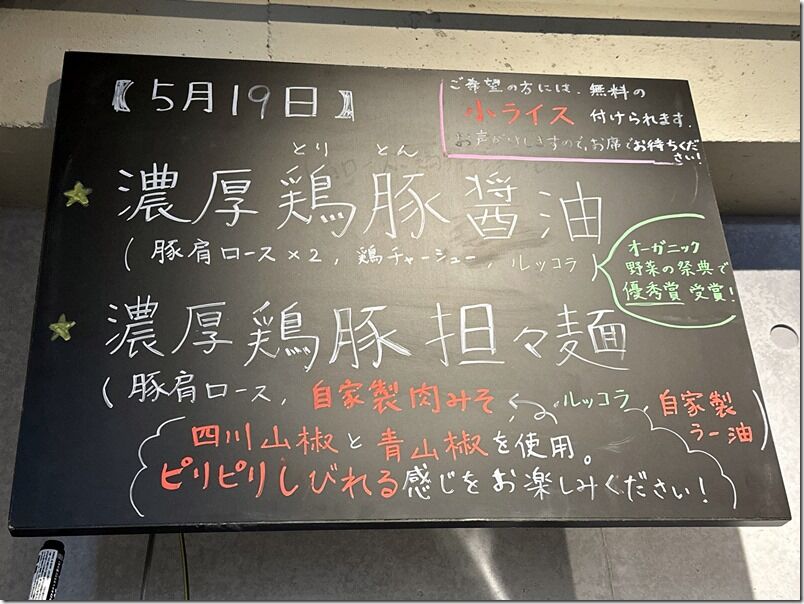 【5月19日】
ご希望の方には、無料の
小ライス 付けられます.
お声がけしますので、お席でお待ちください!
とり とん
濃厚鶏豚醤油
(豚肩ロース×2, 鶏チャーシュー, ルッコラ)
オーガニック
野菜の祭典で
優秀賞 受賞!
濃厚鶏豚担々麺
(豚肩ロース, 自家製肉みそ, ルッコラ, 自家製
ラー油)
四川山椒と青山椒を使用。
ピリピリしびれる感じをお楽しみください!